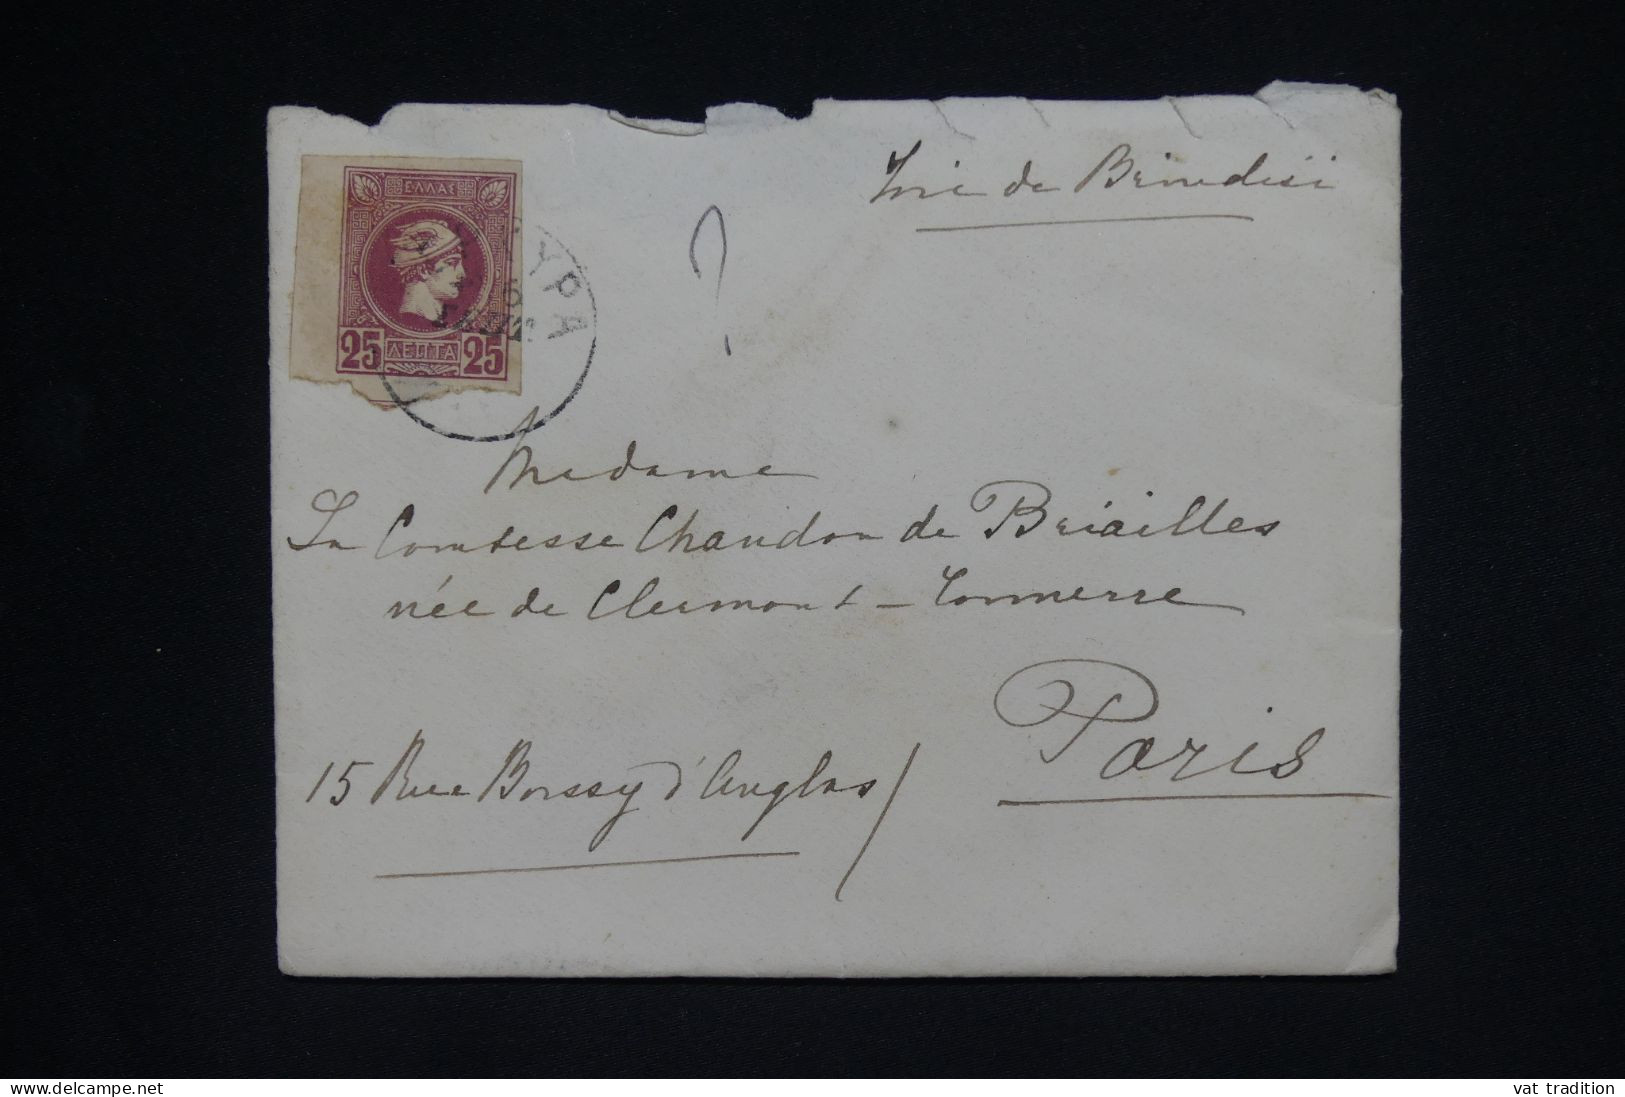 Voie de Brindisi
ΕΛΛΑΣ
ΚΕΡΚΥΡΑ
25 ΛΕΠΤΑ 25
?
Madame
La Comtesse Chandon de Briailles
née de Clermont-Tonnerre
Paris
15 Rue Boissy d'Anglas
www.delcampe.net
vat tradition